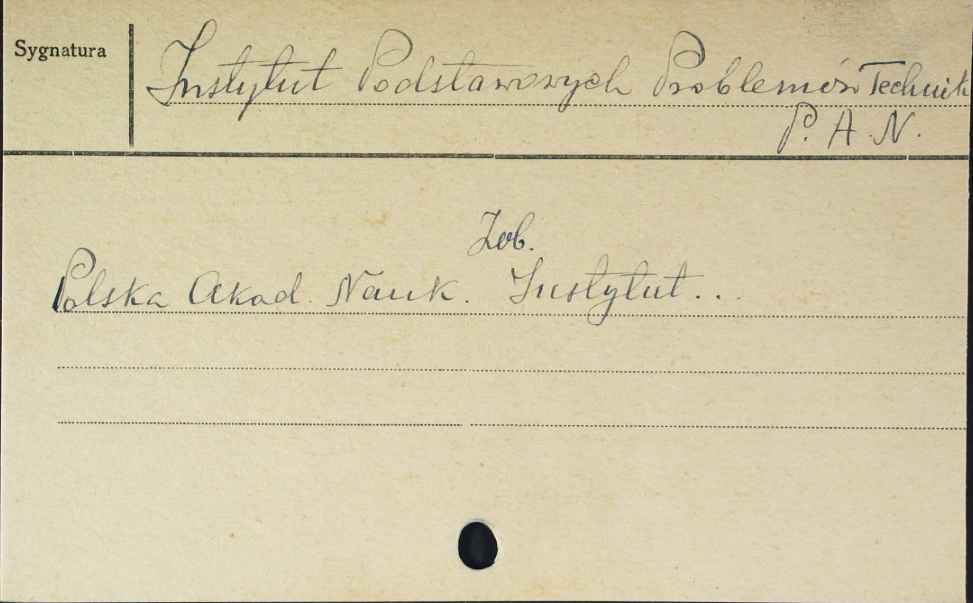 Sygnatura
Instytut Podstawowych Problemów Technik
P. A. N.
Zob.
Polska Akad. Nauk. Instytut...